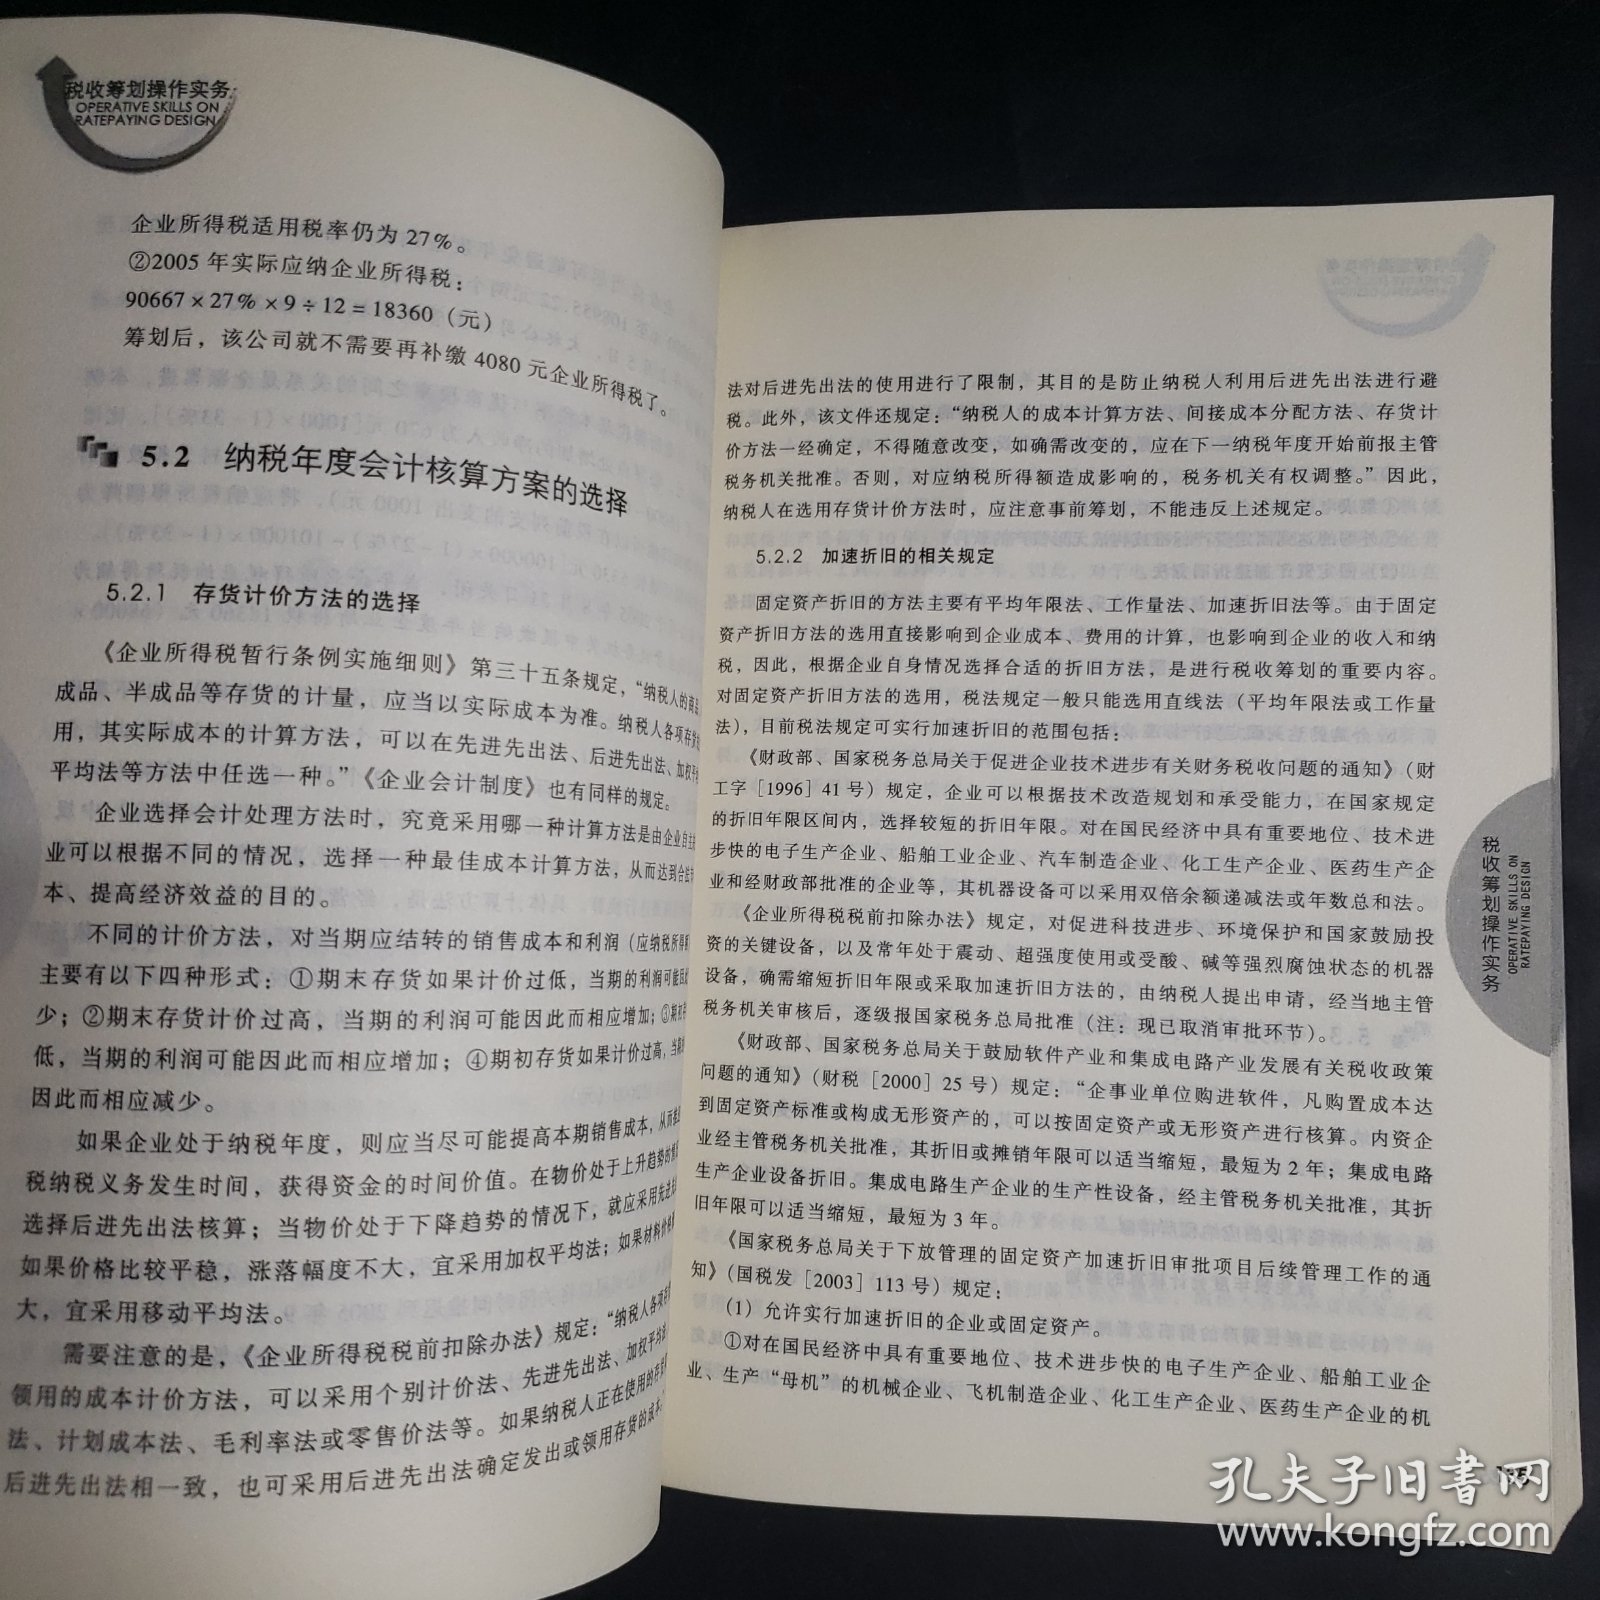 税收筹划操作实务
OPERATIVE SKILLS ON
RATEPAYING DESIGN
企业所得税适用税率仍为 27%。
②2005 年实际应纳企业所得税：
90667 × 27% × 9 ÷ 12 = 18360（元）
筹划后，该公司就不需要再补缴 4080 元企业所得税了。
5.2 纳税年度会计核算方案的选择
5.2.1 存货计价方法的选择
《企业所得税暂行条例实施细则》第三十五条规定，“纳税人的商品
成品、半成品等存货的计量，应当以实际成本为准。纳税人各项存货
用，其实际成本的计算方法，可以在先进先出法、后进先出法、加权平
平均法等方法中任选一种。”《企业会计制度》也有同样的规定。
企业选择会计处理方法时，究竟采用哪一种计算方法是由企业自主
业可以根据不同的情况，选择一种最佳成本计算方法，从而达到合
本、提高经济效益的目的。
不同的计价方法，对当期应结转的销售成本和利润（应纳税所得
主要有以下四种形式：①期末存货如果计价过低，当期的利润可能因
少；②期末存货计价过高，当期的利润可能因此而相应增加；③期初
低，当期的利润可能因此而相应增加；④期初存货如果计价过高，当期
因此而相应减少。
如果企业处于纳税年度，则应当尽可能提高本期销售成本，从而
税纳税义务发生时间，获得资金的时间价值。在物价处于上升趋势的
选择后进先出法核算；当物价处于下降趋势的情况下，就应采用先进
如果价格比较平稳，涨落幅度不大，宜采用加权平均法；如果材料价格
大，宜采用移动平均法。
需要注意的是，《企业所得税税前扣除办法》规定：“纳税人各项
领用的成本计价方法，可以采用个别计价法、先进先出法、加权平均
法、计划成本法、毛利率法或零售价法等。如果纳税人正在使用的存货
后进先出法相一致，也可采用后进先出法确定发出或领用存货的成
法对后进先出法的使用进行了限制，其目的是防止纳税人利用后进先出法进行避
税。此外，该文件还规定：“纳税人的成本计算方法、间接成本分配方法、存货计
价方法一经确定，不得随意改变，如确需改变的，应在下一纳税年度开始前报主管
税务机关批准。否则，对应纳税所得额造成影响的，税务机关有权调整。”因此，
纳税人在选用存货计价方法时，应注意事前筹划，不能违反上述规定。
5.2.2 加速折旧的相关规定
固定资产折旧的方法主要有平均年限法、工作量法、加速折旧法等。由于固定
资产折旧方法的选用直接影响到企业成本、费用的计算，也影响到企业的收入和纳
税，因此，根据企业自身情况选择合适的折旧方法，是进行税收筹划的重要内容。
对固定资产折旧方法的选用，税法规定一般只能选用直线法（平均年限法或工作量
法），目前税法规定可实行加速折旧的范围包括：
《财政部、国家税务总局关于促进企业技术进步有关财务税收问题的通知》（财
工字［1996］41 号）规定，企业可以根据技术改造规划和承受能力，在国家规定
的折旧年限区间内，选择较短的折旧年限。对在国民经济中具有重要地位、技术进
步快的电子生产企业、船舶工业企业、汽车制造企业、化工生产企业、医药生产企
业和经财政部批准的企业等，其机器设备可以采用双倍余额递减法或年数总和法。
《企业所得税税前扣除办法》规定，对促进科技进步、环境保护和国家鼓励投
资的关键设备，以及常年处于震动、超强度使用或受酸、碱等强烈腐蚀状态的机器
设备，确需缩短折旧年限或采取加速折旧方法的，由纳税人提出申请，经当地主管
税务机关审核后，逐级报国家税务总局批准（注：现已取消审批环节）。
《财政部、国家税务总局关于鼓励软件产业和集成电路产业发展有关税收政策
问题的通知》（财税［2000］25 号）规定：“企事业单位购进软件，凡购置成本达
到固定资产标准或构成无形资产的，可以按固定资产或无形资产进行核算。内资企
业经主管税务机关批准，其折旧或摊销年限可以适当缩短，最短为 2 年；集成电路
生产企业设备折旧。集成电路生产企业的生产性设备，经主管税务机关批准，其折
旧年限可以适当缩短，最短为 3 年。
《国家税务总局关于下放管理的固定资产加速折旧审批项目后续管理工作的通
知》（国税发［2003］113 号）规定：
（1）允许实行加速折旧的企业或固定资产。
①对在国民经济中具有重要地位、技术进步快的电子生产企业、船舶工业企
业、生产“母机”的机械企业、飞机制造企业、化工生产企业、医药生产企业的机
税收筹划操作实务
OPERATIVE SKILLS ON
RATEPAYING DESIGN
孔夫子旧书网
www.kongfz.com